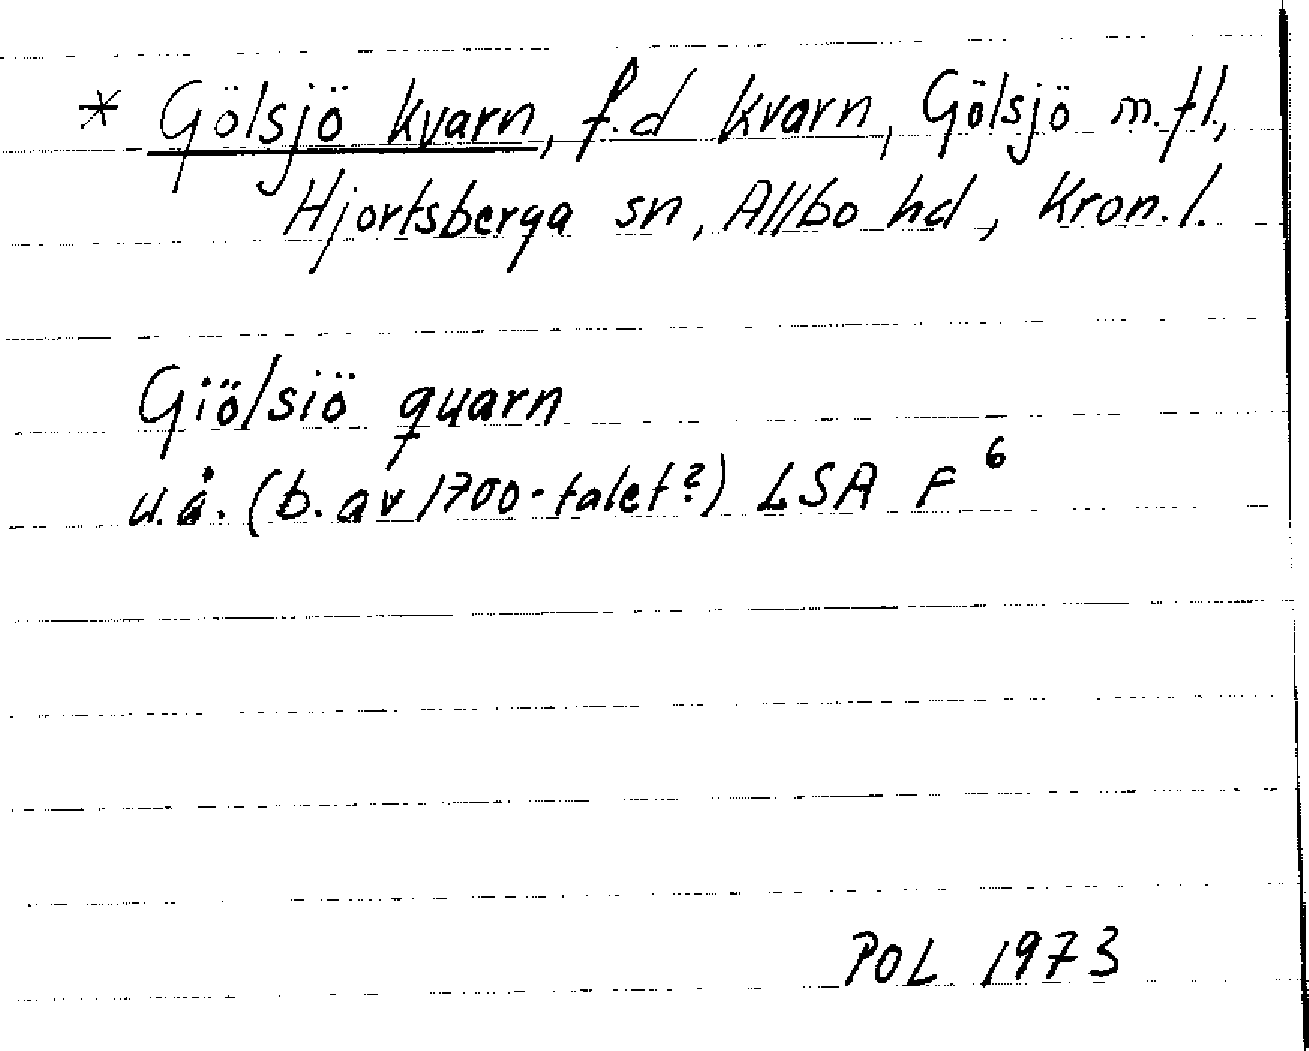 * Gölsjö kvarn, f.d kvarn, Gölsjö m.fl.,
Hjortsberga sn, Allbo hd, Kron.l.
Giölsiö quarn
u.å. (b. av 1700-talet?) LSA F⁶
POL 1973